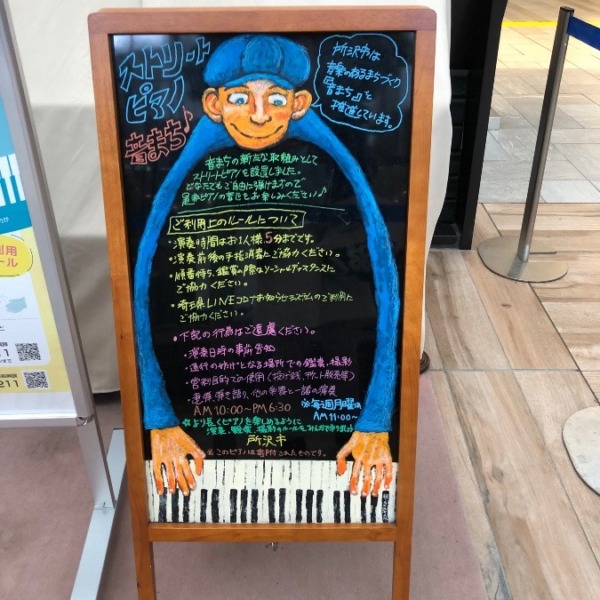 ストリート
ピアノ
音まち♪
所沢市は
音楽のあるまちづくり
『音まち』を
推進しています。
音まちの新たな取組みとして
ストリートピアノを設置しました。
どなたでもご自由に弾けますので
ピアノの音色をお楽しみください♪
ご利用上のルールについて
・演奏時間はお1人様5分までです。
・演奏前後の手指消毒にご協力ください。
・順番待ち、鑑賞の際はソーシャルディスタンスに
ご協力ください。
・埼玉県LINEコロナお知らせシステムのご利用に
ご協力ください。
・下記の行為はご遠慮ください。
・演奏日時の事前告知
・通行の妨げとなる場所での鑑賞、撮影
・営利目的での使用(投げ銭、チケット販売等)
・連弾、弾き語り、他の楽器と一緒の演奏
AM10:00~PM6:30
※毎週月曜は
AM11:00~
☆より長くピアノを楽しめるように
演奏、鑑賞、撮影のルールをみんなで守りましょう
所沢市
※このピアノは寄附されたものです。
利用
ール
211